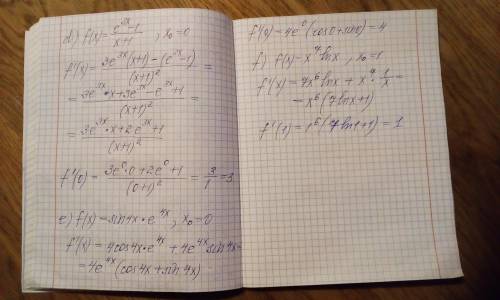 d) f(x) = (e^{3x} - 1)/(x+1), x₀ = 0
f'(x) = (3e^{3x}(x+1) - (e^{3x} - 1))/(x+1)² =
= (3e^{3x}·x + 3e^{3x} - e^{3x} + 1)/(x+1)² =
= (3e^{3x}·x + 2e^{3x} + 1)/(x+1)²
f'(0) = (3e⁰·0 + 2e⁰ + 1)/(0+1)² = 3/1 = 3
e) f(x) = sin4x·e^{4x}, x₀ = 0
f'(x) = 4cos4x·e^{4x} + 4e^{4x}sin4x =
= 4e^{4x}(cos4x + sin4x)
f'(0) = 4e⁰(cos0 + sin0) = 4
f) f(x) = x⁷lnx, x₀ = 1
f'(x) = 7x⁶lnx + x⁷·1/x =
= x⁶(7lnx + 1)
f'(1) = 1⁶(7ln1 + 1) = 1